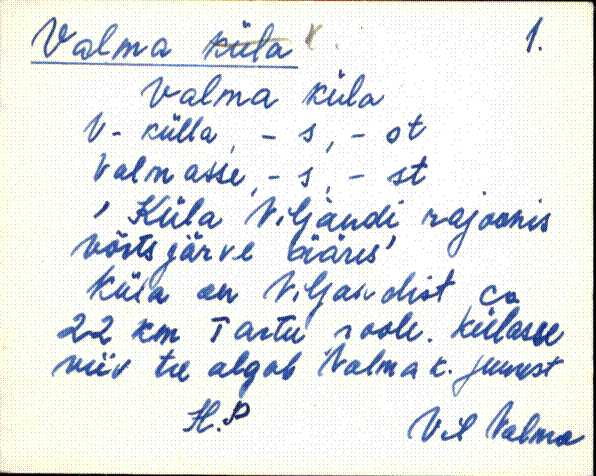 Valma küla k. 1.
Valma küla
V- külla, - s, - st
Valmasse, - s, - st
' Küla Viljandi rajoonis
Võrtsjärve ääres'
Küla on Viljandist ca
22 km Tartu poole. Külasse
viiv tee algab Valma k. juurest
H.P
Vil Valma